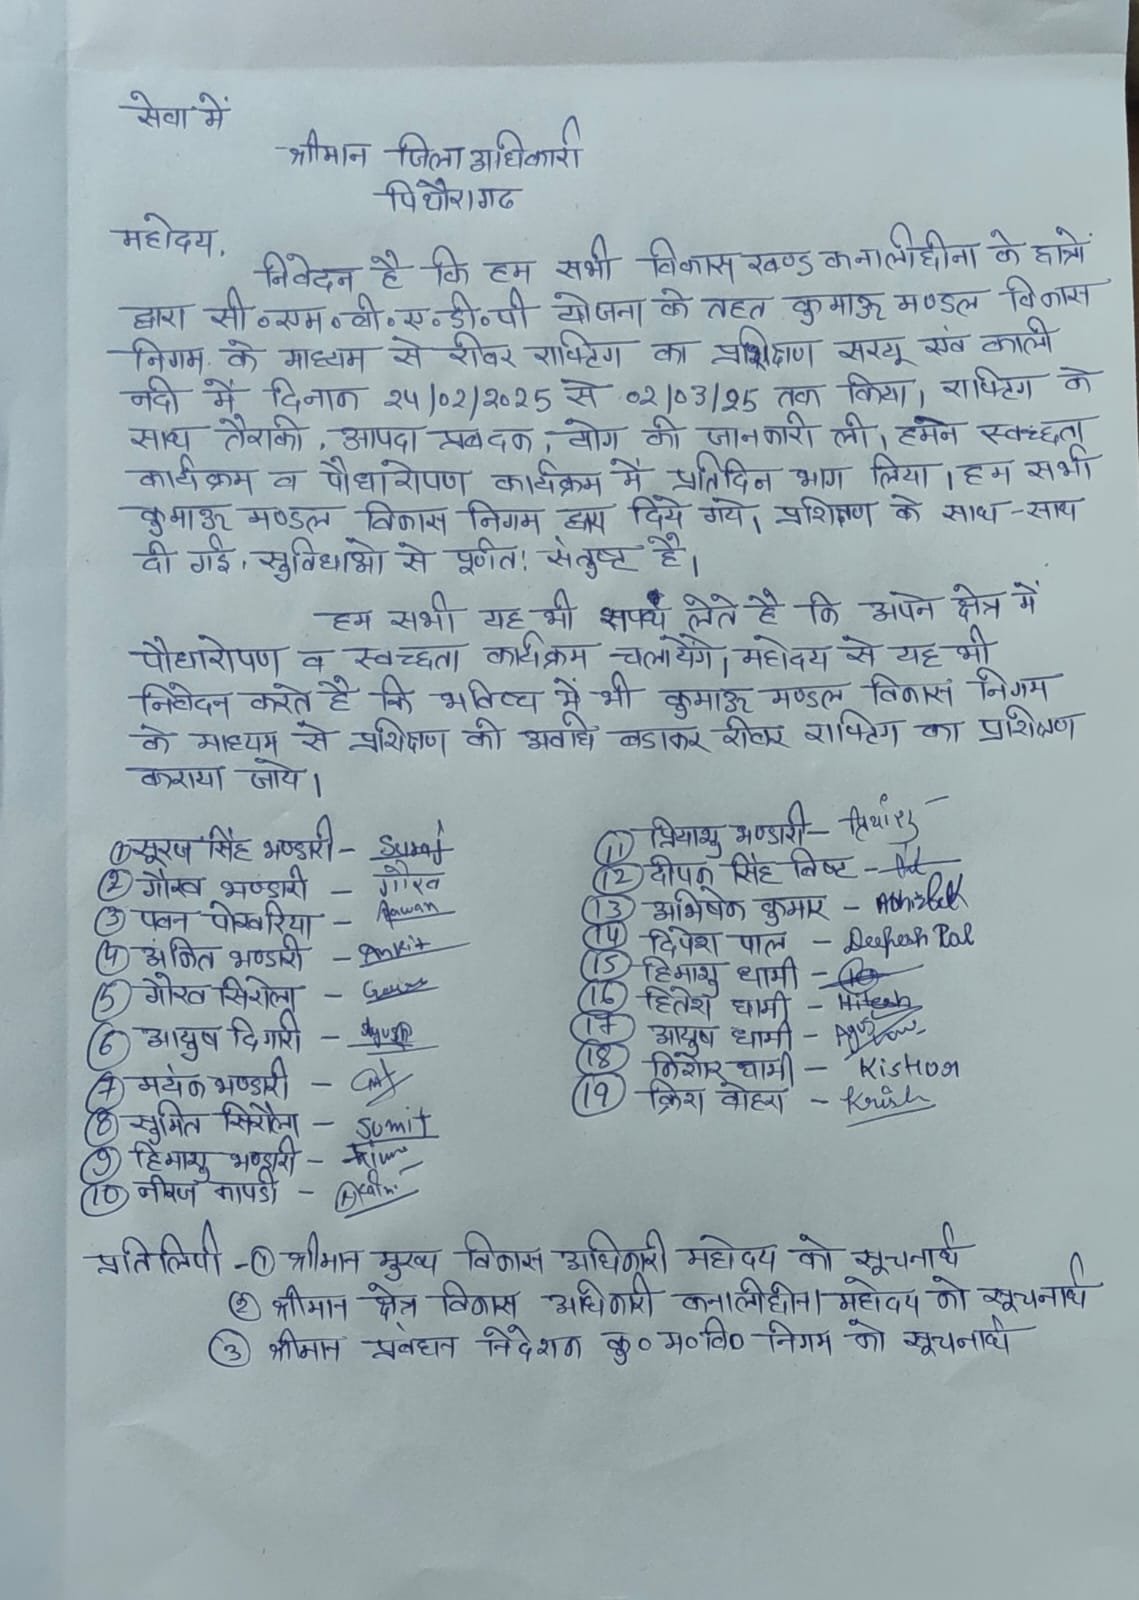 सेवा में
श्रीमान जिला अधिकारी
पिथौरागढ
महोदय,
निवेदन है कि हम सभी विकास खण्ड कनालीछीना के छात्रों
द्वारा सी०एम०वी०ए०डी०पी योजना के तहत कुमाऊ मण्डल विकास
निगम के माध्यम से रीवर राफ्टिग का प्रशिक्षण सरयू एंव काली
नदी में दिनाक 24/02/2025 से 02/03/25 तक किया। राफ्टिग के
साथ तैराकी, आपदा प्रबदक, योग की जानकारी ली। हमेन स्वच्छता
कार्यक्रम व पौधारोपण कार्यक्रम में प्रतिदिन भाग लिया। हम सभी
कुमाऊ मण्डल विकास निगम द्वारा दिये गये। प्रशिक्षण के साथ-साथ
दी गई, सुविधाओ से पूर्णत: संतुष्ट है।
हम सभी यह भी सपथ लेते है कि अपने क्षेत्र में
पौधारोपण व स्वच्छता कार्यक्रम चलायेंगे। महोदय से यह भी
निवेदन करते है कि भविष्य में भी कुमाऊ मण्डल विकास निगम
के माध्यम से प्रशिक्षण की अवधि बडाकर रीवर राफ्टिग का प्रशिक्षण
कराया जाये।
① सूरज सिंह भण्डारी - Suraj
② गौरव भण्डारी - गौरव
③ पवन पोखरिया - Pawan
④ अंकित भण्डारी - Ankit
⑤ गौरव सिरोला -
⑥ आयुष दिगारी - Ayush
⑦ मयंक भण्डारी -
⑧ सुमित सिरौला - Sumit
⑨ हिमाशु भण्डारी -
⑩ नीरज कापडी -
⑪ प्रियाशु भण्डारी - प्रियांशु
⑫ दीपक सिंह बिष्ट -
⑬ अभिषेक कुमार - Abhishek
⑭ दिपेश पाल - Deepesh Pal
⑮ हिमाशु धामी -
⑯ हितेश धामी - Hitesh
⑰ आयुष धामी -
⑱ किशोर धामी - Kishor
⑲ क्रिश बोहरा - Krish
प्रतिलिपी - ① श्रीमान मुख्य विकास अधिकारी महोदय को सूचनार्थ
② श्रीमान क्षेत्र विकास अधिकारी कनालीछीना महोदय को सूचनार्थ
③ श्रीमान प्रबंधन निदेशक कु० म० वि० निगम को सूचनार्थ